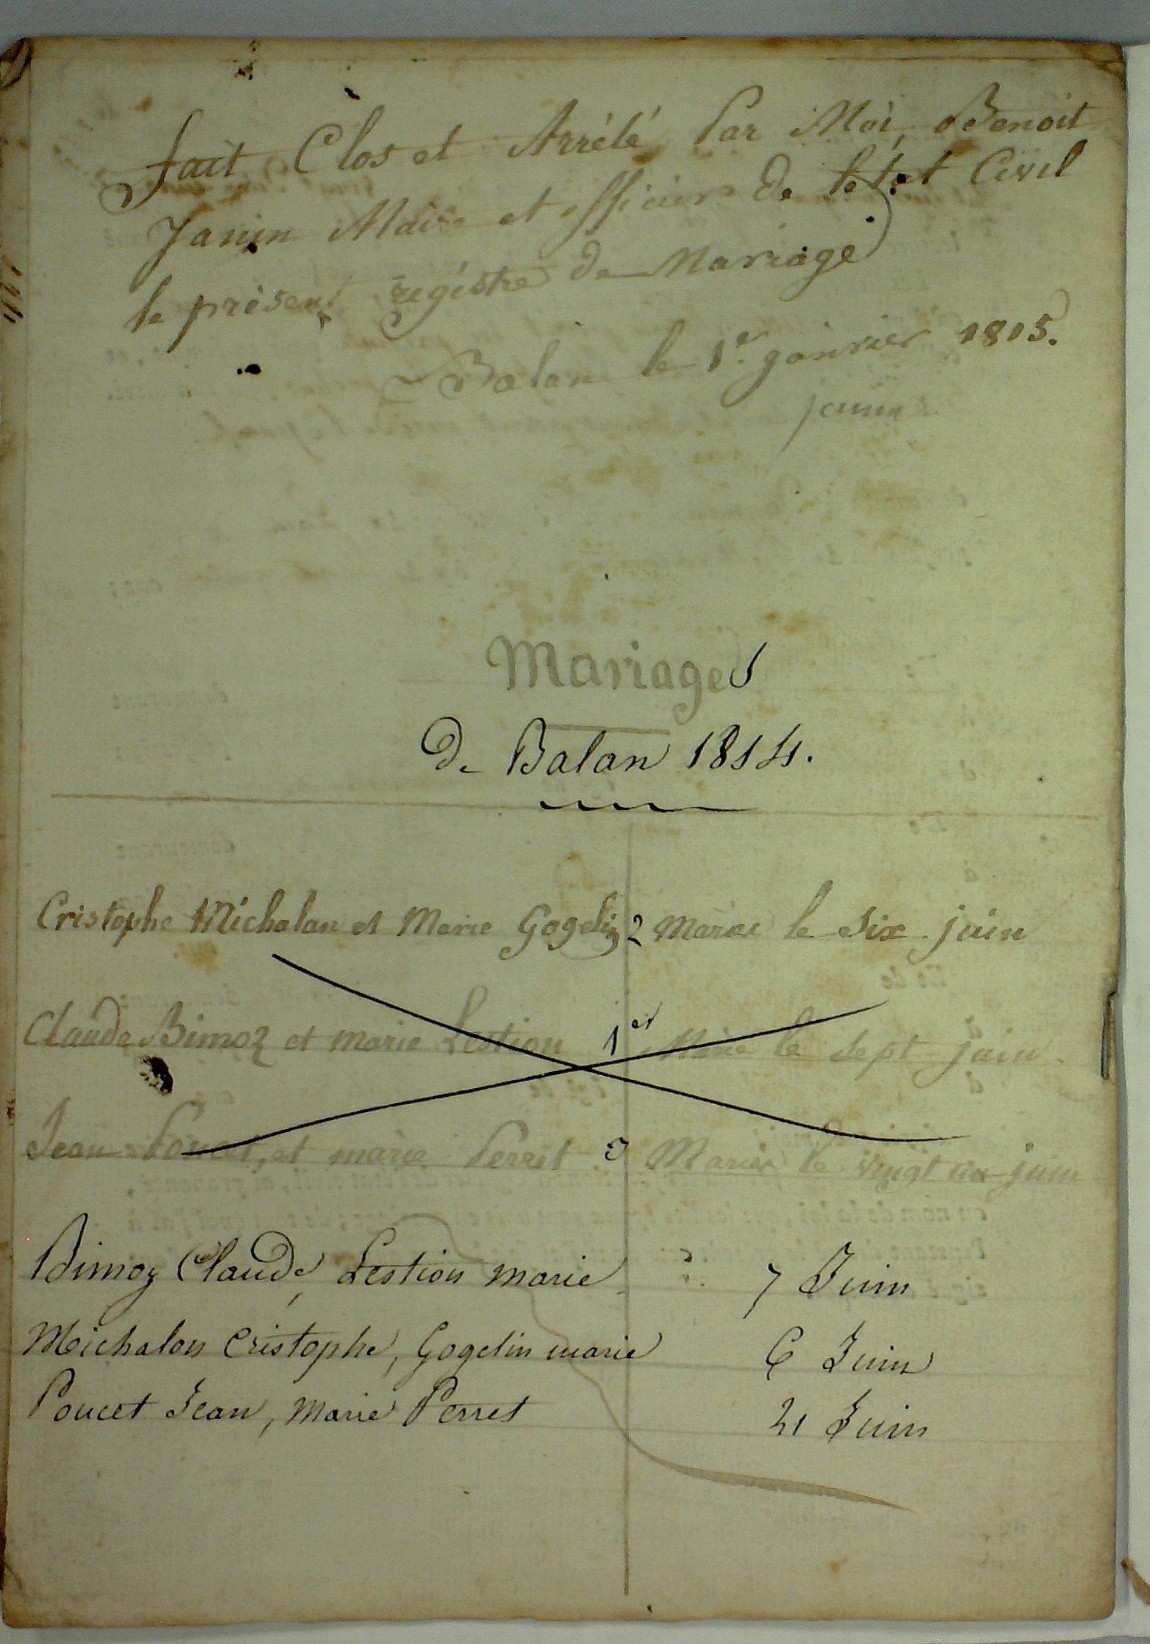 fait Clos et Arrété Par Moi Benoit
Janin Maire et officier de letat Civil
le présent régistre de Mariage
Balan le 1er janvier 1815.
janin
Mariages
De Balan 1814.
Cristophe Michalan et Marie Gogelin 2 Marié le Six juin
Claude Bimoz et marie Lestion 1er Marié le sept juin
Jean Poucet, et marie Perret 3 Mariés le vingt un juin
Bimoz Claude, Lestion marie 7 Juin
Michalon Cristophe, Gogelin marie 6 Juin
Poucet Jean, Marie Perret 21 Juin